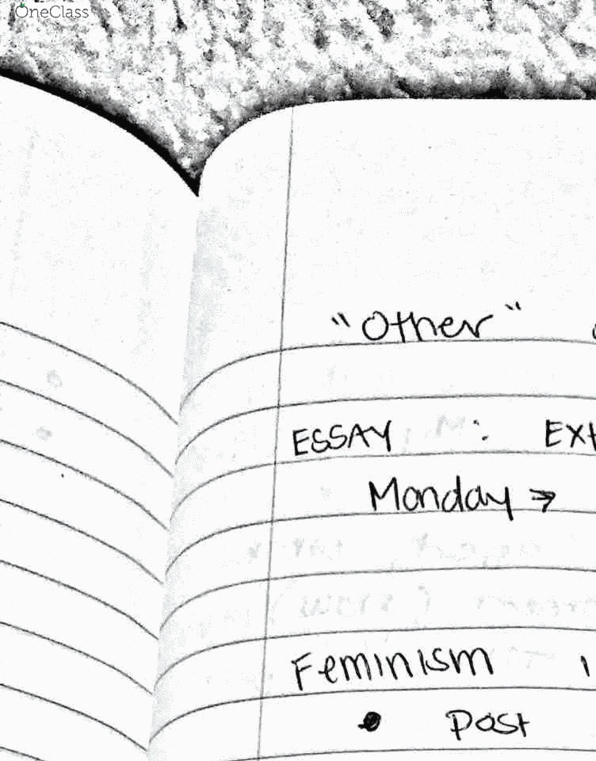 OneClass
"Other"
ESSAY : Ext
Monday →
Feminism
• Post